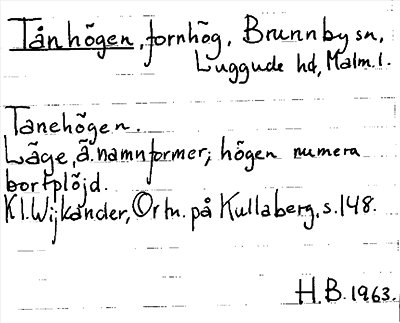 Tånhögen, fornhög, Brunnby sn,
Luggude hd, Malm.l.
Tanehögen.
Läge, ä. namnformer; högen numera
bortplöjd.
Kl. Wijkander, Ortn. på Kullaberg, s. 148.
H.B. 1963.